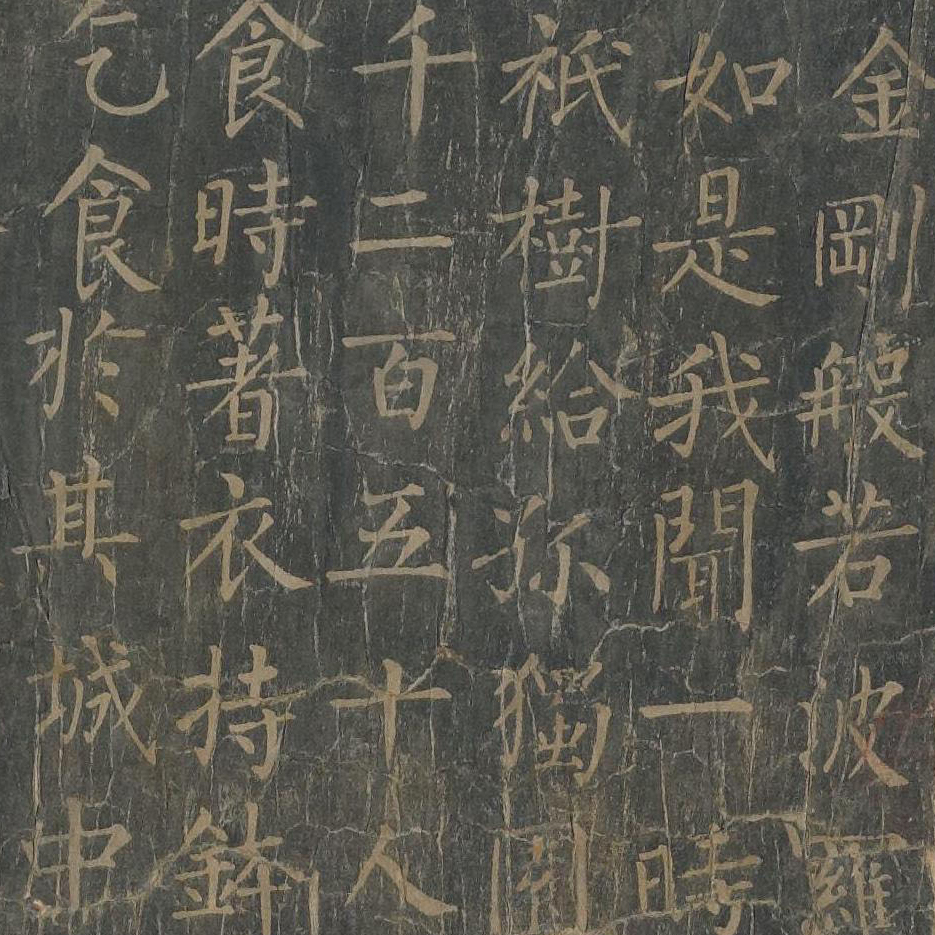 金剛般若波羅
如是我聞一時
祇樹給孤獨園
千二百五十人
食時著衣持鉢
乞食於其城中